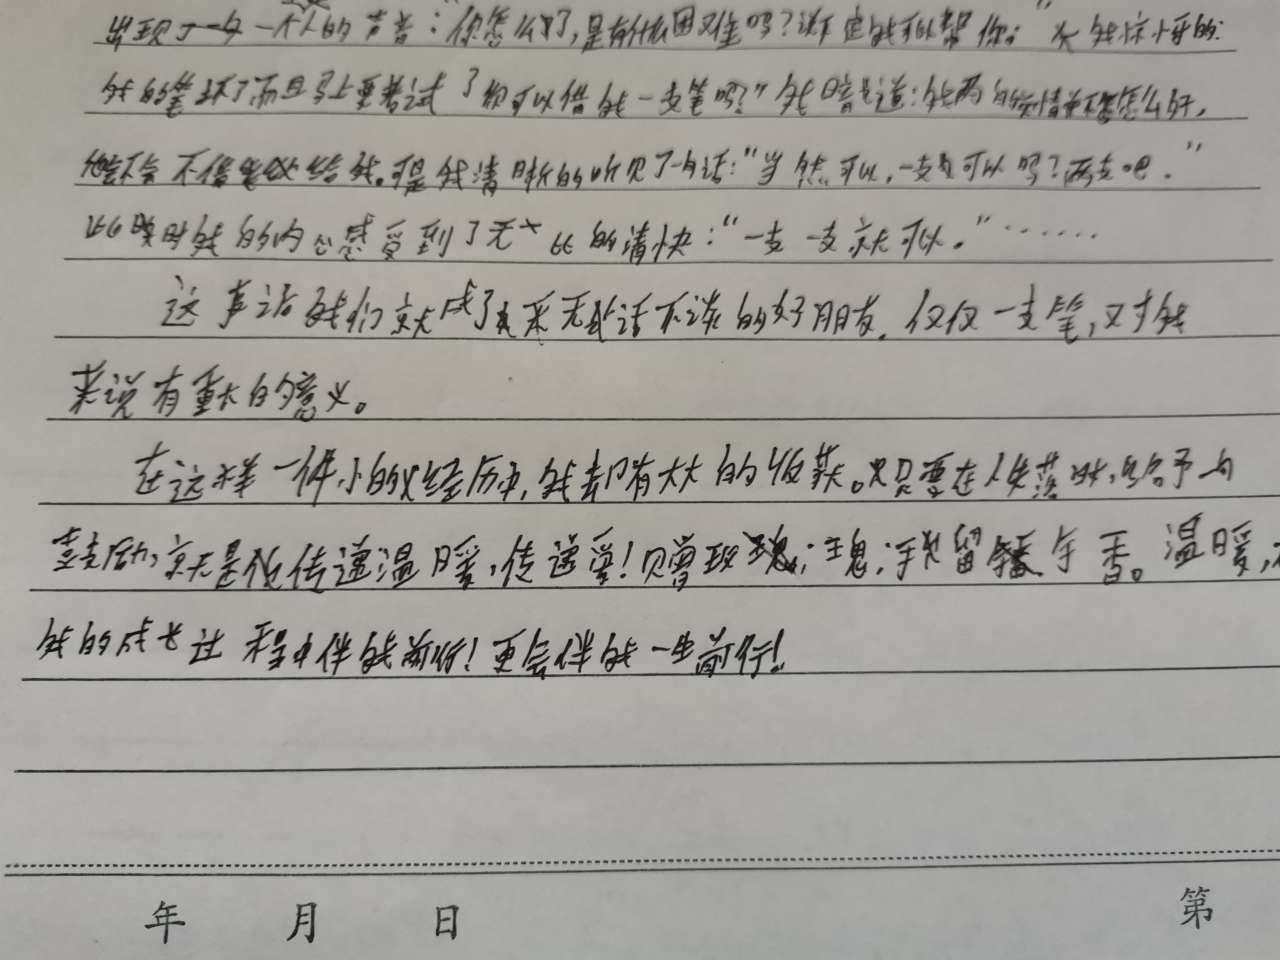 出现了一个人的声音："你怎么了,是有什么困难吗?说不定我可以帮你。"
我的笔坏了而且马上要考试了你可以借我一支笔吗?"我暗道:我两的感情并不怎么好,
他会不会不借给我。可是我清晰的听见了一句话:"当然可以,一支可以吗?两支吧."
此时我的内心感受到了无比的清快:"一支一支就可以."……
这事后我们就成了无话不谈的好朋友.仅仅一支笔,对我
来说有重大的意义。
在这样一件小的经历中,我却有大大的收获。只要在人失落时,给予与
鼓励,就是传递温暖,传递爱!赠玫瑰;手留香。温暖,
我的成长过程中伴我前行!更会伴我一生前行!
年 月 日 第